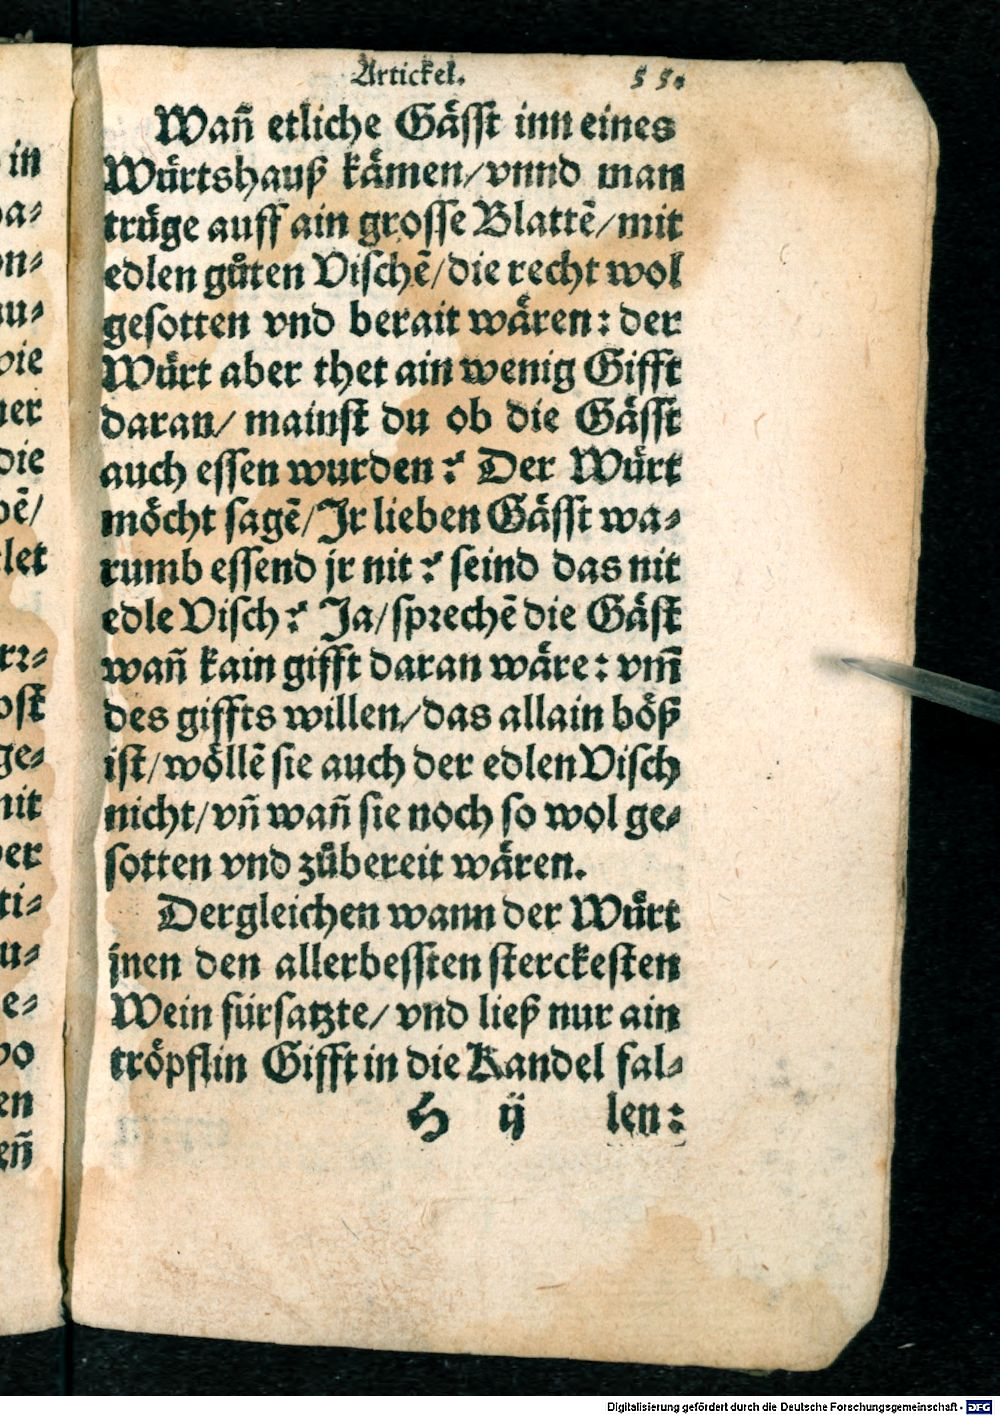 Artickel. 55.
Wañ etliche Gässt inn eines
Wuͤrtshauß kaͤmen/vnnd man
truͤge auff ain grosse Blattẽ/mit
edlen guͦten Vischẽ/die recht wol
gesotten vnd berait waͤren: der
Wuͤrt aber thet ain wenig Gifft
daran/ mainst du ob die Gaͤsst
auch essen wurden? Der Wuͤrt
moͤcht sagẽ/Jr lieben Gaͤsst wa⸗
rumb essend jr nit? seind das nit
edle Visch? Ja/sprechẽ die Gaͤst
wañ kain gifft daran waͤre: vm̃
des giffts willen/das allain boͤß
ist/woͤllẽ sie auch der edlen Visch
nicht/vñ wañ sie noch so wol ge⸗
sotten vnd zuͦbereit waͤren.
Dergleichen wann der Wuͤrt
jnen den allerbessten sterckesten
Wein fürsatzte/ vnd ließ nur ain
troͤpflin Gifft in die Kandel fal⸗
H ij len:
in
pa⸗
on⸗
nu⸗
wie
ner
die
bẽ/
tlet
rr⸗
ost
ge⸗
nit
ber
ti⸗
u⸗
e⸗
vo
en
eñ
Digitalisierung gefördert durch die Deutsche Forschungsgemeinschaft - DFG